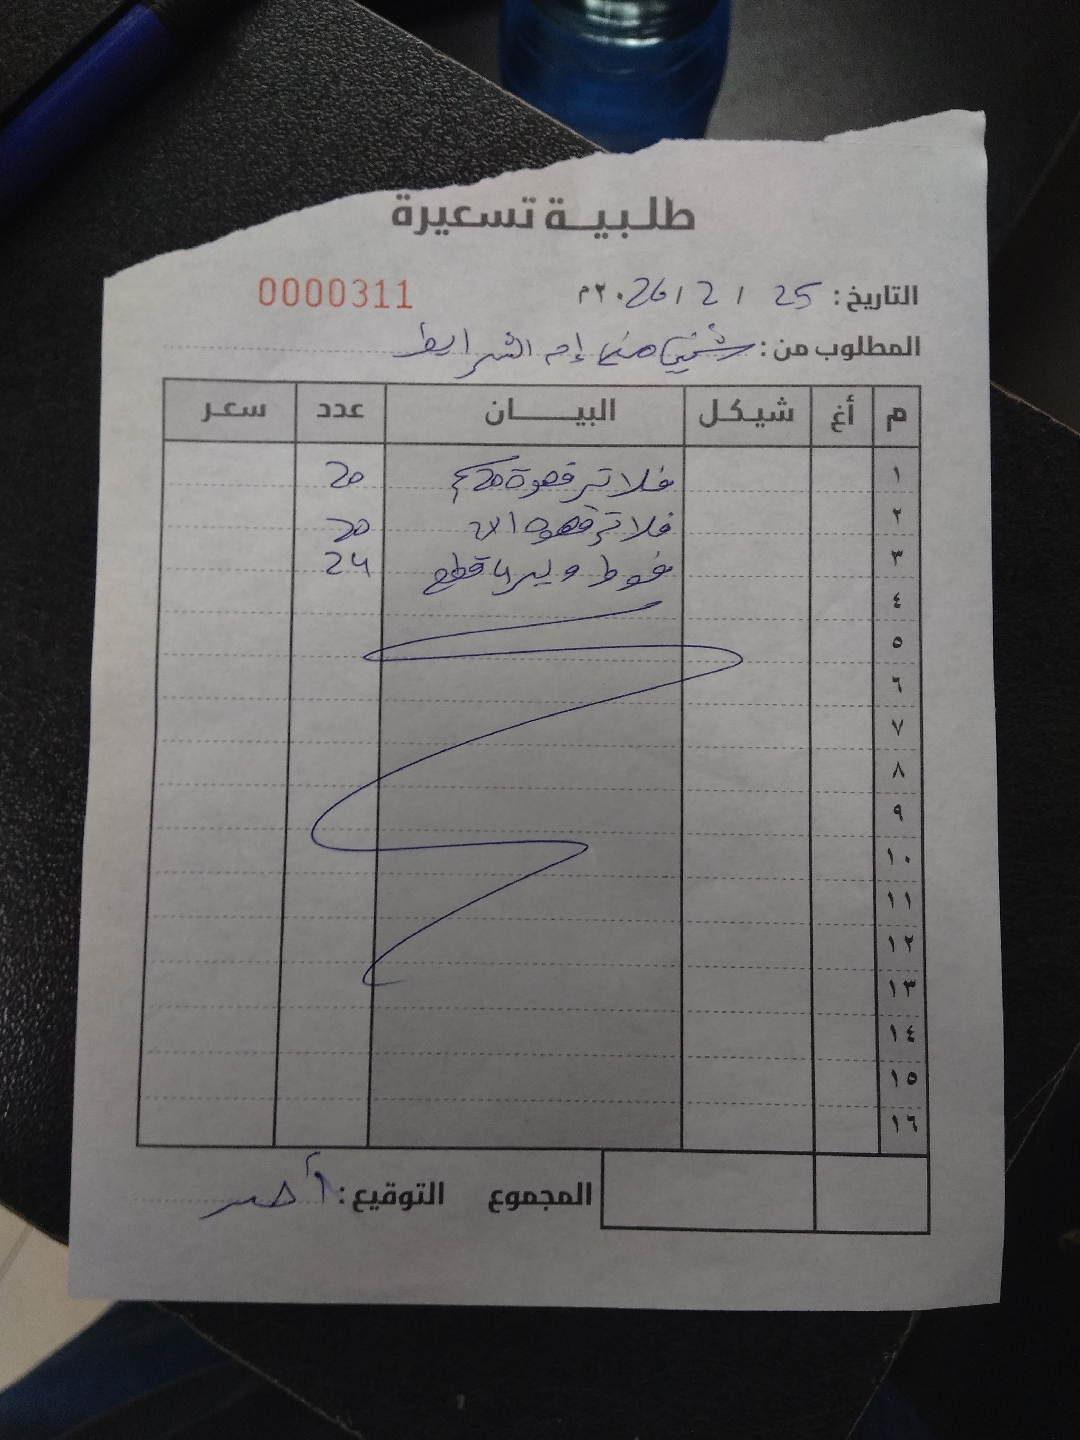 طلبية تسعيرة
التاريخ: 25 / 2 / ٢٠26م 0000311
المطلوب من: إم الشرايط
م أغ شيكل البيـــان عدد سعر
١ فلاتر قهوة 20
٢ فلاتر قهوة 20
٣ فوط ويبر قطع 24
٤
٥
٦
٧
٨
٩
١٠
١١
١٢
١٣
١٤
١٥
١٦
المجموع التوقيع: